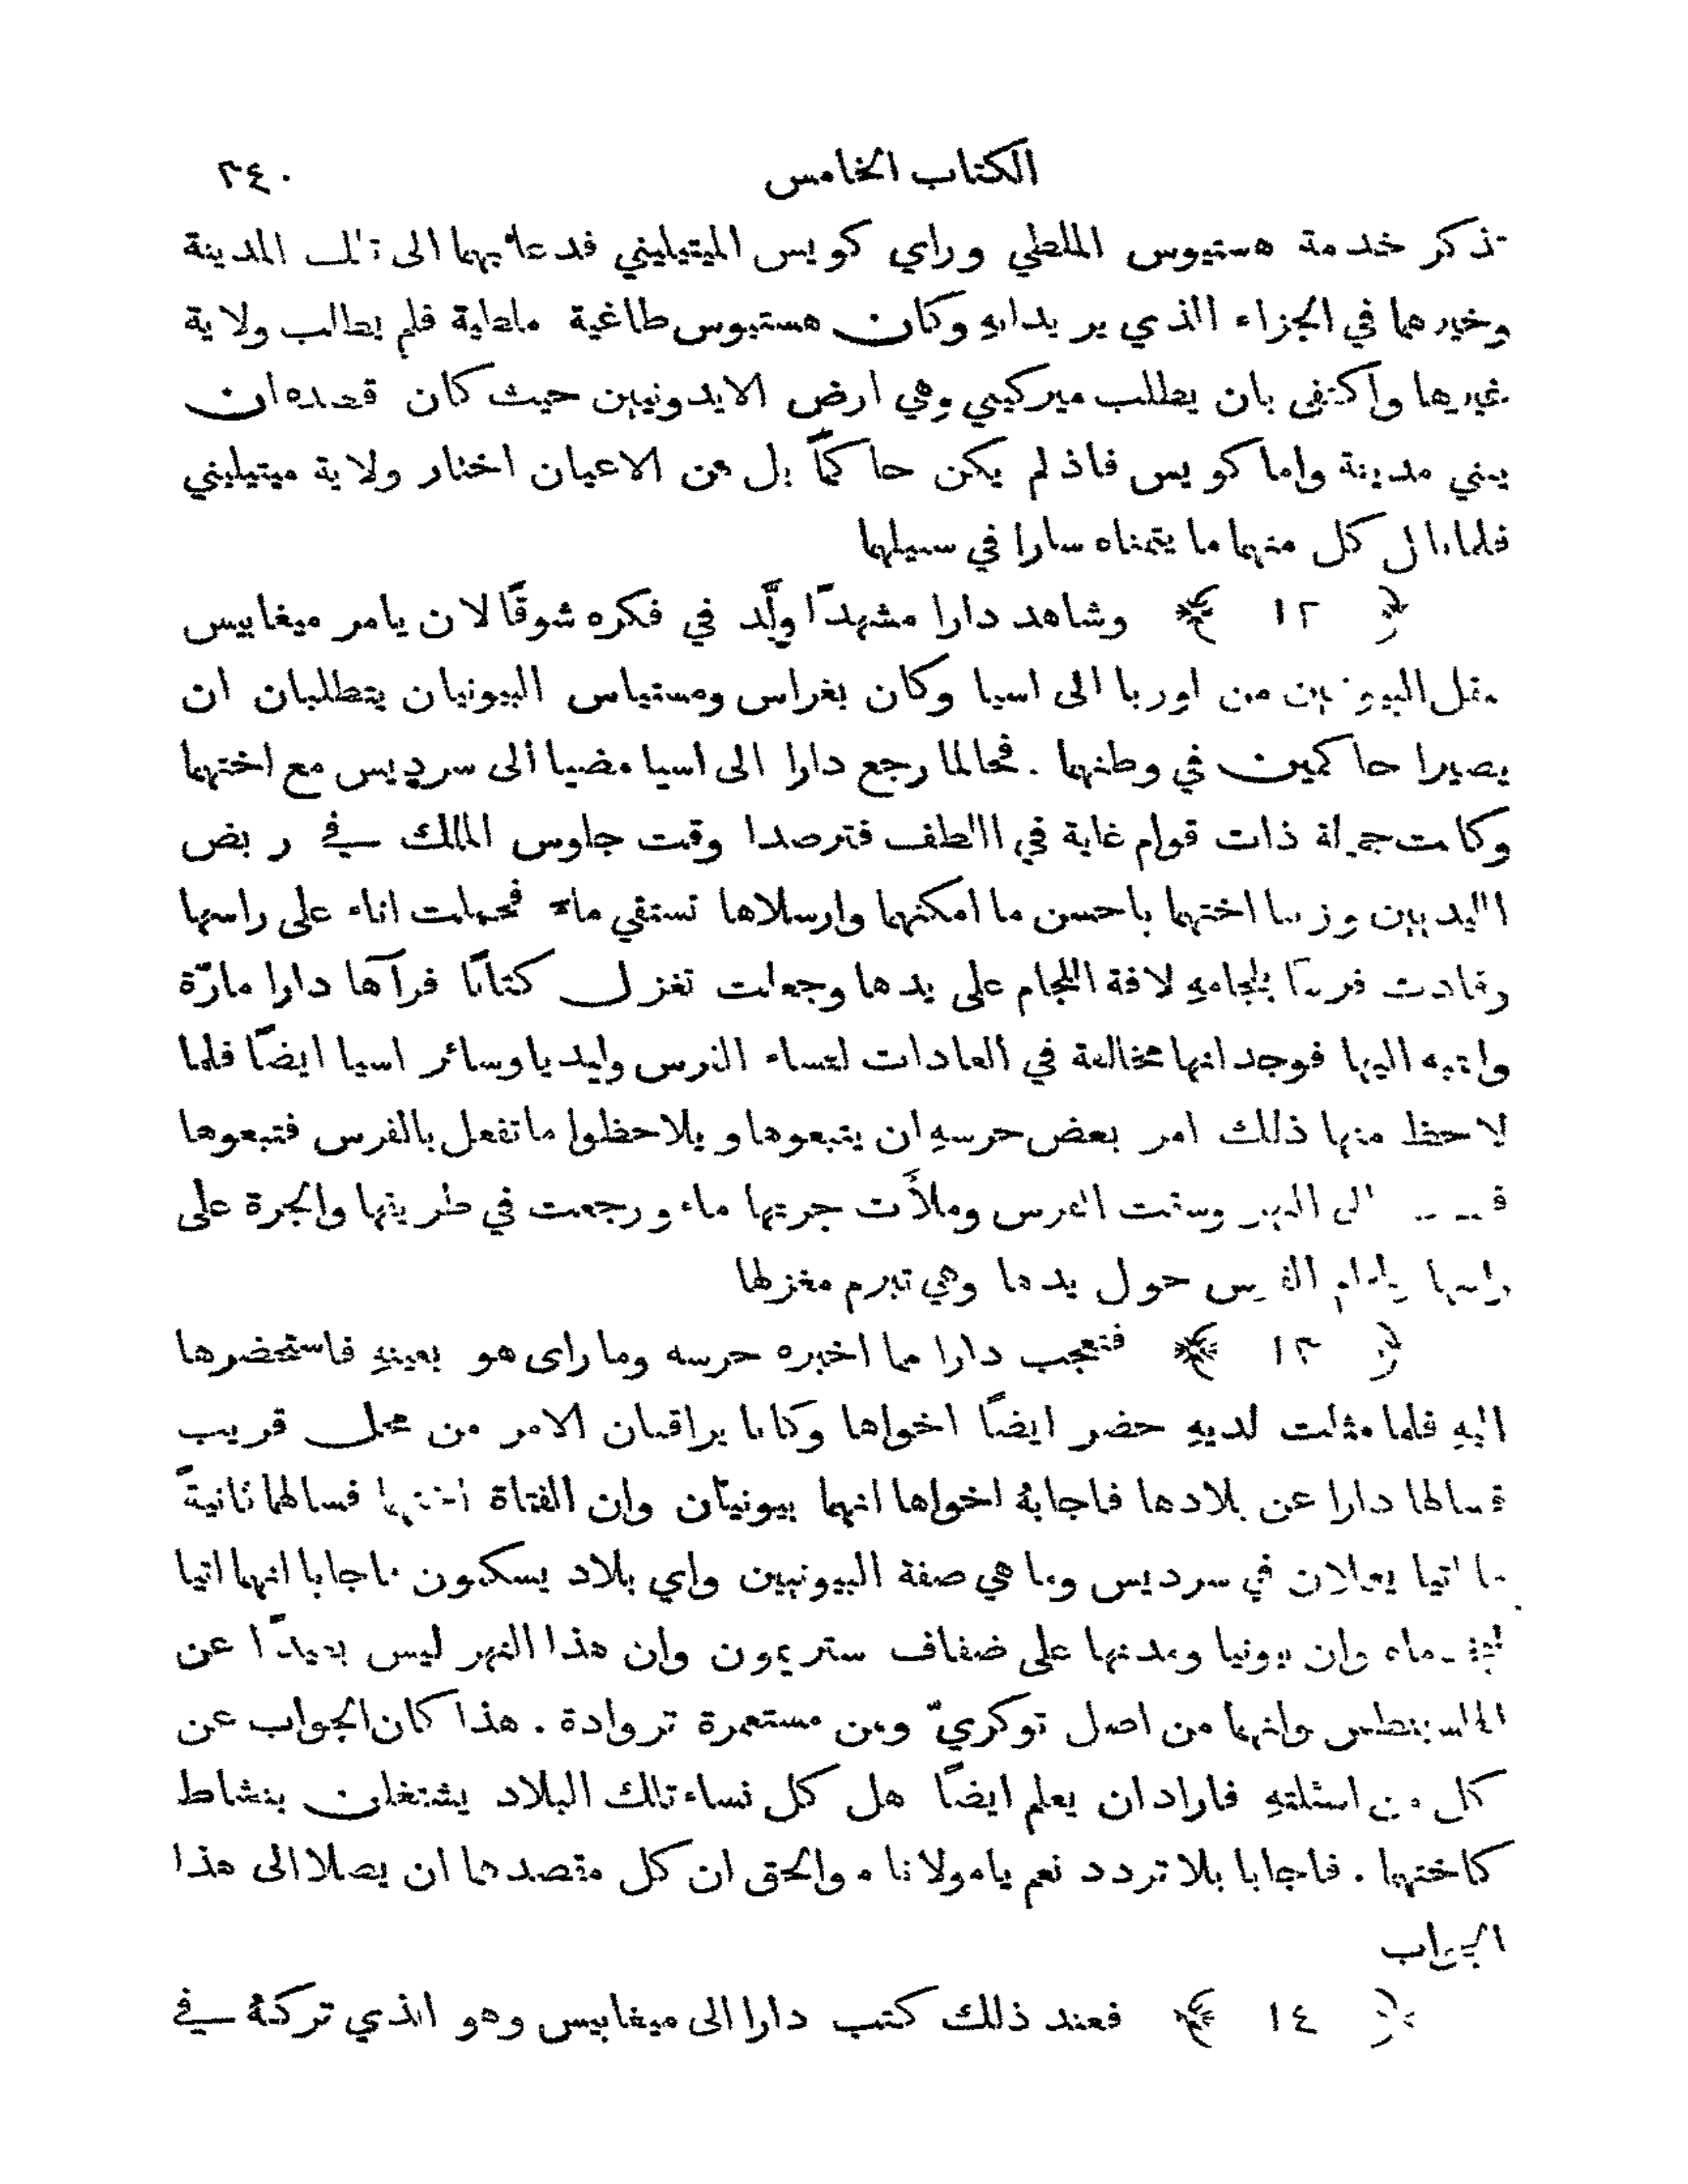 الكتاب الخامس ٢٤٠
تذكر خدمة هستيوس الملطي وراي كويس الميتيليني فدعا بهما الى تلك المدينة
وخيرهما في الجزاء الذي يريدانهِ وكان هستيوس طاغية ملطية فلم يطلب ولاية
غيرها واكتفى بان يطلب ميركيبي وهي ارض الايدونيين حيث كان قصده ان
يبني مدينة واما كويس فاذ لم يكن حاكمًا بل من الاعيان اختار ولاية ميتيليني
فلما نال كل منهما ما يتمناه سارا في سبيلهما
﴿ ١٢ ﴾ وشاهد دارا مشهدًا ولَّد في فكره شوقًا لان يامر ميغابيس
بنقل البيونيين من اوربا الى اسيا وكان بغراس ومستياس البيونيان يتطلبان ان
يصيرا حاكمين في وطنهما . فحالما رجع دارا الى اسيا مضيا الى سرديس مع اختهما
وكانت جميلة ذات قوام غاية في اللطف فترصدا وقت جلوس الملك في ربض
الليديين وزينا اختهما باحسن ما امكنهما وارسلاها تستقي ماء فحملت اناء على راسها
وقادت فرسًا بلجامهِ لافة اللجام على يدها وجعلت تغزل كتانًا فرآها دارا مارّة
وانتبه اليها فوجد انها مخالفة في العادات لنساء الفرس وليديا وسائر اسيا ايضًا فلما
لاحظ منها ذلك امر بعض حرسهِ ان يتبعوها ويلاحظوا ما تفعل بالفرس فتبعوها
الى النهر وسقت الفرس وملأَت جرتها ماء ورجعت في طريقها والجرة على
راسها ولجام الفرس حول يدها وهي تبرم مغزلها
﴿ ١٣ ﴾ فتعجب دارا مما اخبره حرسه وما راى هو بعينهِ فاستحضرها
اليهِ فلما مثلت لديهِ حضر ايضًا اخواها وكانا يراقبان الامر من محل قريب
فسالها دارا عن بلادها فاجابهُ اخواها انهما بيونيّان وان الفتاة اختهما فسالهما ثانيةً
ما اتيا يعملان في سرديس وما هي صفة البيونيين واي بلاد يسكنون فاجابا انهما اتيا
ليخدماه وان بيونيا ومدنها على ضفاف ستريمون وان هذا النهر ليس بعيدًا عن
الهلسبنطس وانهما من اصل توكريّ ومن مستعمرة تروادة . هذا كان الجواب عن
كل من اسئلتهِ فاراد ان يعلم ايضًا هل كل نساء تلك البلاد يشتغلن بنشاط
كاختهما . فاجابا بلا تردد نعم يا مولانا . والحق ان كل مقصدهما ان يصلا الى هذا
الجواب
﴿ ١٤ ﴾ فعند ذلك كتب دارا الى ميغابيس وهو الذي تركهُ في